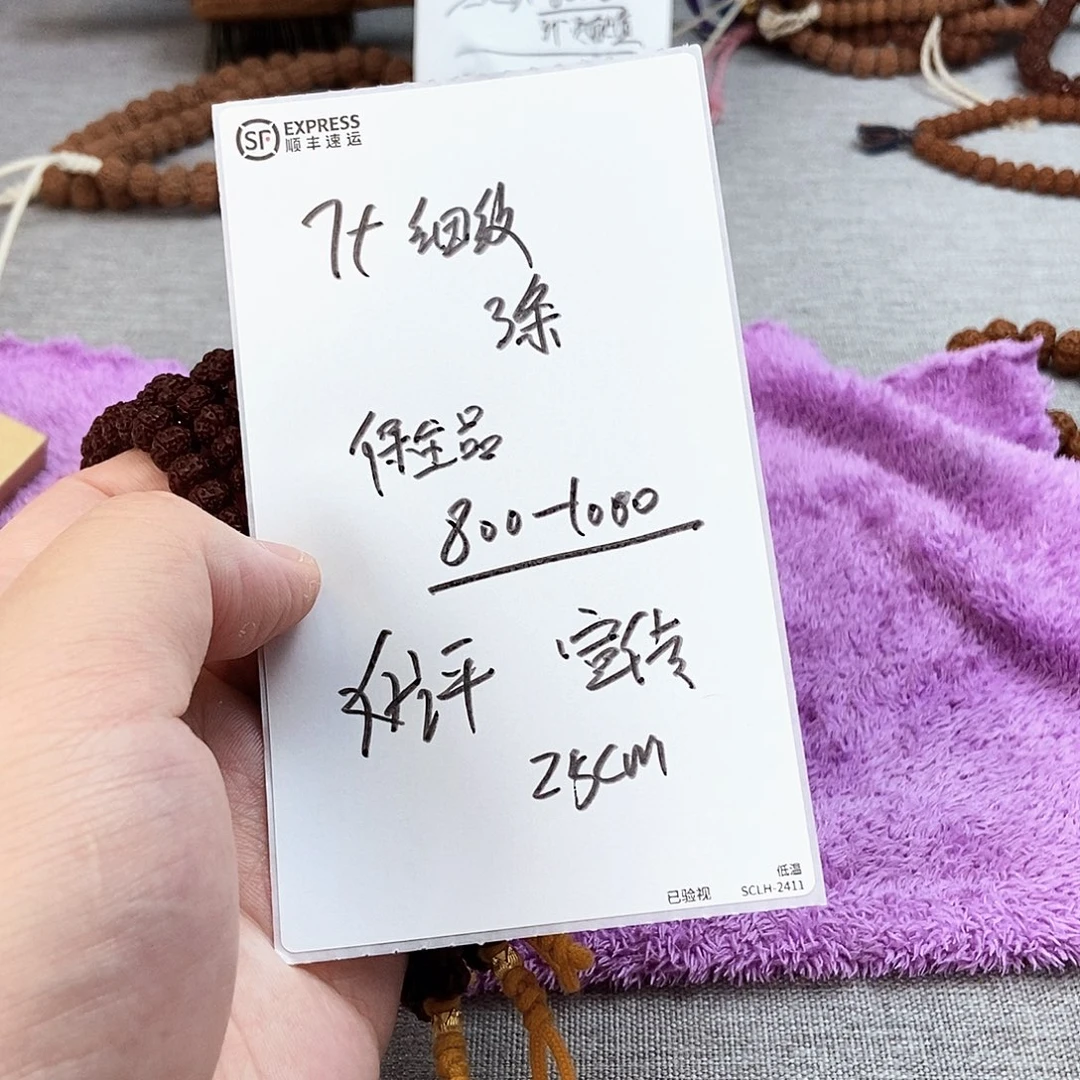 SF EXPRESS
顺丰速运
7t 细纹
3条
保全品
800-1000
好评 宣传
28cm
低温
已验视 SCLH-2411